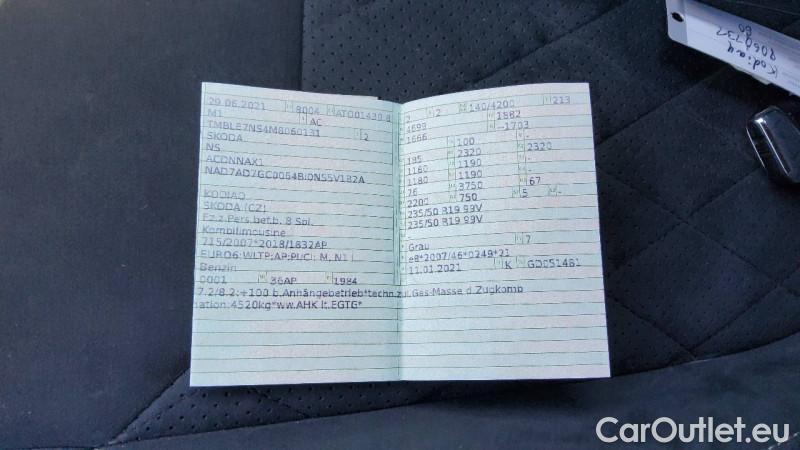 Kodiaq
8060737
29.06.2021 8004 ATO01430 8
M1 AC
TMBLE7NS4M8060131 2
SKODA
NS
ACDNNAX1
NAD7AD7GC0064BJ0NS5V1B2A
KODIAQ
SKODA (CZ)
Fz.z.Pers.bef.b. 8 Spl.
Kombilimousine
715/2007*2018/1832AP
EURO6;WLTP;AP;PI/CI; M, N1 I
Benzin
0001 36AP 1984
7.2/8.2:+100 b.Anhängebetrieb*techn.zul.Ges-Masse d.Zugkomb
nation:4520kg*ww.AHK lt.EGTG*
2 2 140/4200 213
4699 1882
1666 --1703
100 -
195 2320 2320
1160 1190 -
1180 1190 -
76 3750 67
2200 750 5 -
235/50 R19 99V
235/50 R19 99V
-
Grau 7
e8*2007/46*0249*21
11.01.2021 K GD051481
CarOutlet.eu